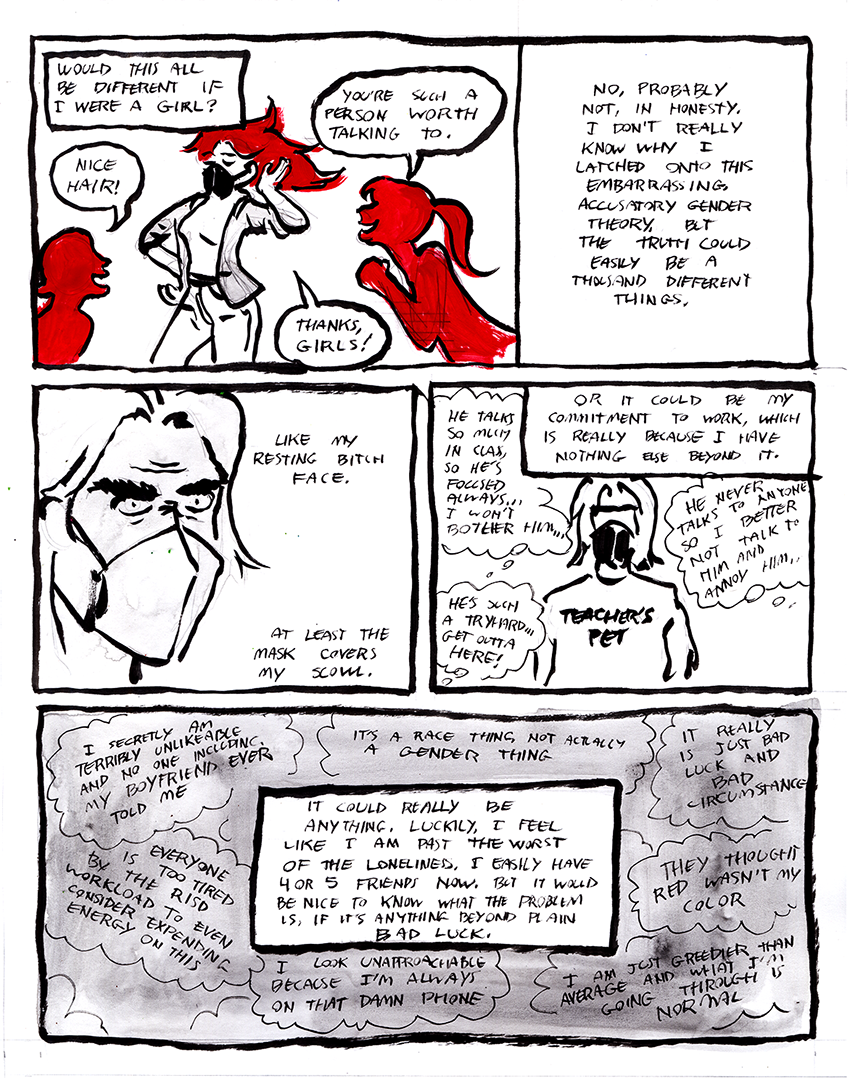 WOULD THIS ALL
BE DIFFERENT IF
I WERE A GIRL?
NICE
HAIR!
YOU'RE SUCH A
PERSON WORTH
TALKING TO.
THANKS,
GIRLS!
NO, PROBABLY
NOT, IN HONESTY.
I DON'T REALLY
KNOW WHY I
LATCHED ONTO THIS
EMBARRASSING
ACCUSATORY GENDER
THEORY, BUT
THE TRUTH COULD
EASILY BE A
THOUSAND DIFFERENT
THINGS.
LIKE MY
RESTING BITCH
FACE.
AT LEAST THE
MASK COVERS
MY SCOWL.
OR IT COULD BE MY
COMMITMENT TO WORK, WHICH
IS REALLY BECAUSE I HAVE
NOTHING ELSE BEYOND IT.
HE TALKS
SO MUCH
IN CLASS,
SO HE'S
FOCUSED
ALWAYS...
I WON'T
BOTHER HIM...
HE NEVER
TALKS TO ANYONE
SO I BETTER
NOT TALK TO
HIM AND
ANNOY HIM..
HE'S SUCH
A TRYHARD...
GET OUTTA
HERE!
TEACHER'S
PET
I SECRETLY AM
TERRIBLY UNLIKEABLE
AND NO ONE INCLUDING
MY BOYFRIEND EVER
TOLD ME
IT'S A RACE THING, NOT ACTUALLY
A GENDER THING
IT REALLY
IS JUST BAD
LUCK AND
BAD
CIRCUMSTANCE
IT COULD REALLY BE
ANYTHING. LUCKILY, I FEEL
LIKE I AM PAST THE WORST
OF THE LONELINESS. I EASILY HAVE
4 OR 5 FRIENDS NOW. BUT IT WOULD
BE NICE TO KNOW WHAT THE PROBLEM
IS, IF IT'S ANYTHING BEYOND PLAIN
BAD LUCK.
IS EVERYONE
TOO TIRED
BY THE RISD
WORKLOAD TO EVEN
CONSIDER EXPENDING
ENERGY ON THIS
THEY THOUGHT
RED WASN'T MY
COLOR
I LOOK UNAPPROACHABLE
BECAUSE I'M ALWAYS
ON THAT DAMN PHONE
I AM JUST GREEDIER THAN
AVERAGE AND WHAT I'M
GOING THROUGH IS
NORMAL